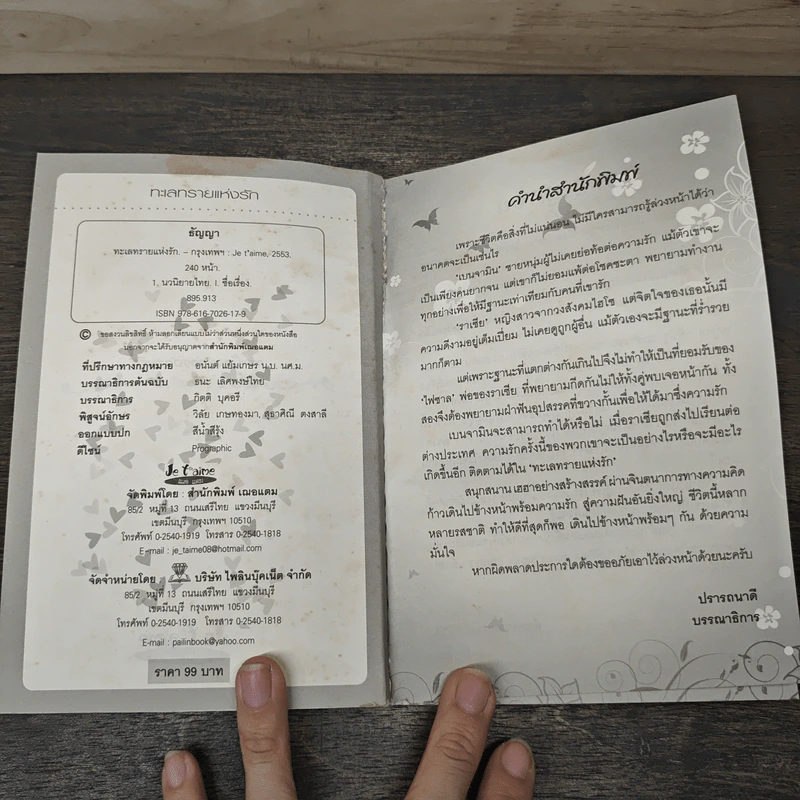 ทะเลทรายแห่งรัก
ธัญญา
ทะเลทรายแห่งรัก. – กรุงเทพฯ : Je t'aime, 2553.
240 หน้า.
1. นวนิยายไทย. I. ชื่อเรื่อง.
895.913
ISBN 978-616-7026-17-9
© ขอสงวนลิขสิทธิ์ ห้ามลอกเลียนแบบไม่ว่าส่วนหนึ่งส่วนใดของหนังสือ
นอกจากจะได้รับอนุญาตจากสำนักพิมพ์เฌอแตม
ที่ปรึกษาทางกฎหมาย อนันต์ แย้มเกษร น.บ. นศ.ม.
บรรณาธิการต้นฉบับ ธนะ เลิศพงษ์ไทย
บรรณาธิการ กิตติ บุคอรี
พิสูจน์อักษร วิลัย เกษทองมา, สุธาศิณี ตงสาลี
ออกแบบปก สีน้ำสีรุ้ง
ดีไซน์ Prographic
Je t'aime
จัดพิมพ์โดย : สำนักพิมพ์ เฌอแตม
85/2 หมู่ที่ 13 ถนนเสรีไทย แขวงมีนบุรี
เขตมีนบุรี กรุงเทพฯ 10510
โทรศัพท์ 0-2540-1919 โทรสาร 0-2540-1818
E-mail : je_taime08@hotmail.com
จัดจำหน่ายโดย บริษัท ไพลินบุ๊คเน็ต จำกัด
85/2 หมู่ที่ 13 ถนนเสรีไทย แขวงมีนบุรี
เขตมีนบุรี กรุงเทพฯ 10510
โทรศัพท์ 0-2540-1919 โทรสาร 0-2540-1818
E-mail : pailinbook@yahoo.com
ราคา 99 บาท
คำนำสำนักพิมพ์
เพราะชีวิตคือสิ่งที่ไม่แน่นอน ไม่มีใครสามารถรู้ล่วงหน้าได้ว่า
อนาคตจะเป็นเช่นไร
'เบนจามิน' ชายหนุ่มผู้ไม่เคยย่อท้อต่อความรัก แม้ตัวเขาจะ
เป็นเพียงคนยากจน แต่เขาก็ไม่ยอมแพ้ต่อโชคชะตา พยายามทำงาน
ทุกอย่างเพื่อให้มีฐานะเท่าเทียมกับคนที่เขารัก
'ราเชีย' หญิงสาวจากวงสังคมไฮโซ แต่จิตใจของเธอนั้นมี
ความดีงามอยู่เต็มเปี่ยม ไม่เคยดูถูกผู้อื่น แม้ตัวเองจะมีฐานะที่ร่ำรวย
มากก็ตาม
แต่เพราะฐานะที่แตกต่างกันเกินไปจึงไม่ทำให้เป็นที่ยอมรับของ
'ไฟซาล' พ่อของราเชีย ที่พยายามกีดกันไม่ให้ทั้งคู่พบเจอหน้ากัน ทั้ง
สองจึงต้องพยายามฝ่าฟันอุปสรรคที่ขวางกั้นเพื่อให้ได้มาซึ่งความรัก
เบนจามินจะสามารถทำได้หรือไม่ เมื่อราเชียถูกส่งไปเรียนต่อ
ต่างประเทศ ความรักครั้งนี้ของพวกเขาจะเป็นอย่างไรหรือจะมีอะไร
เกิดขึ้นอีก ติดตามได้ใน 'ทะเลทรายแห่งรัก'
สนุกสนานเฮฮาอย่างสร้างสรรค์ ผ่านจินตนาการทางความคิด
ก้าวเดินไปข้างหน้าพร้อมความรัก สู่ความฝันอันยิ่งใหญ่ ชีวิตนี้หลาก
หลายรสชาติ ทำให้ดีที่สุดก็พอ เดินไปข้างหน้าพร้อมๆ กัน ด้วยความ
มั่นใจ
หากผิดพลาดประการใดต้องขออภัยเอาไว้ล่วงหน้าด้วยนะครับ
ปรารถนาดี
บรรณาธิการ